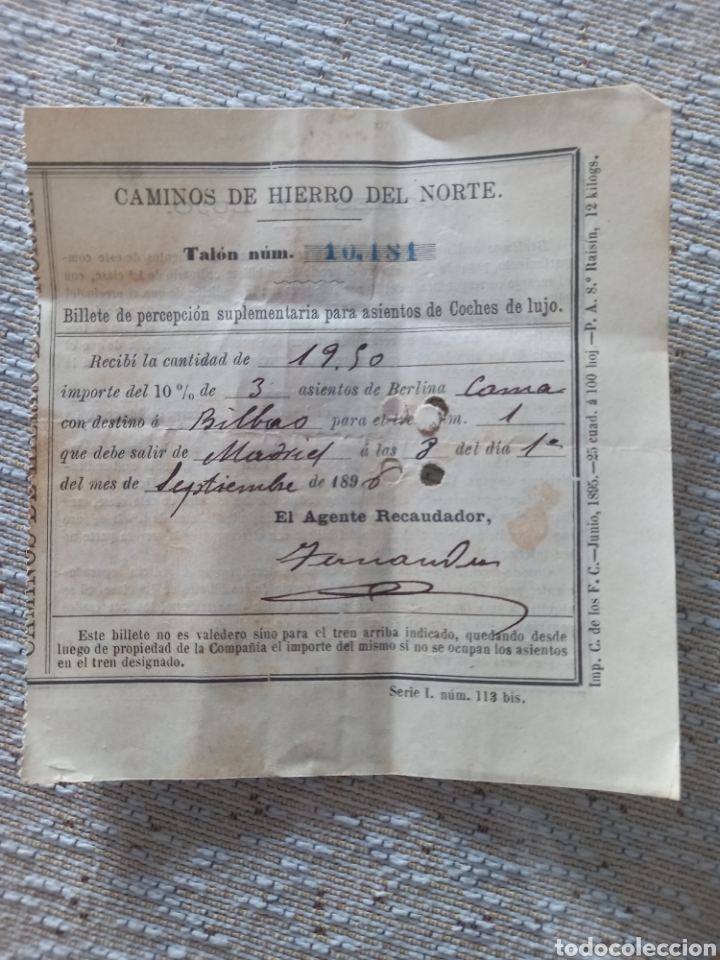 CAMINOS DE HIERRO DEL NORTE.
Talón núm. 10,181
Billete de percepción suplementaria para asientos de Coches de lujo.
Recibí la cantidad de 19,50
importe del 10 % de 3 asientos de Berlina Cama
con destino á Bilbao para el núm. 1
que debe salir de Madrid á las 8 del día 1º
del mes de Septiembre de 189
El Agente Recaudador,
Fernandez
Este billete no es valedero sino para el tren arriba indicado, quedando desde
luego de propiedad de la Compañía el importe del mismo si no se ocupan los asientos
en el tren designado.
Serie I. núm. 113 bis.
Imp. C. de los F. C.—Junio, 1895.—25 cuad. á 100 hoj—P. A. 8.º Raisin, 12 kilogs.
todocoleccion